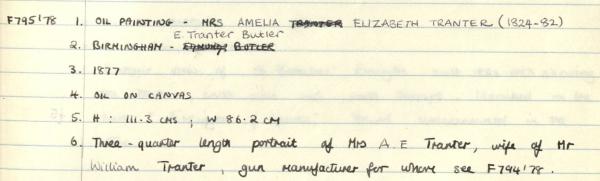 F795'78 1. OIL PAINTING - MRS AMELIA TRANTER ELIZABETH TRANTER (1824-82)
E. Tranter Butler
2. BIRMINGHAM - EDMUND BUTLER
3. 1877
4. OIL ON CANVAS
5. H : 111.3 CMS ; W 86.2 CM
6. Three-quarter length portrait of Mrs A.E Tranter, wife of Mr
William Tranter, gun manufacturer for whom see F794'78.